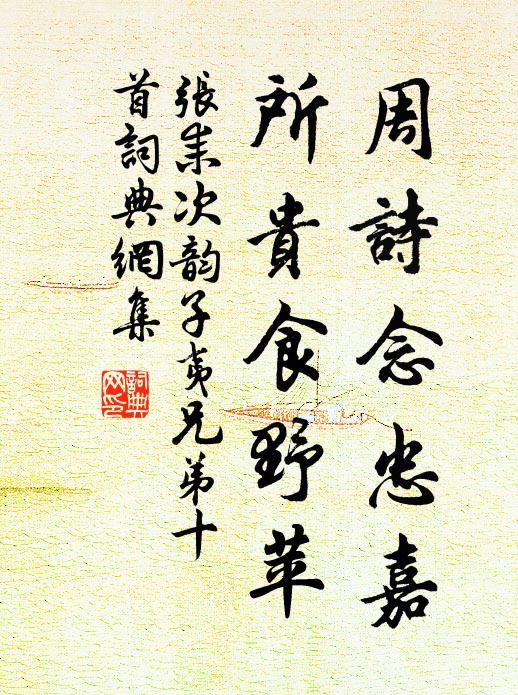 周詩念忠嘉
所貴食野苹
張耒次韵子夷兄弟十
首詞典網集
詞典網印